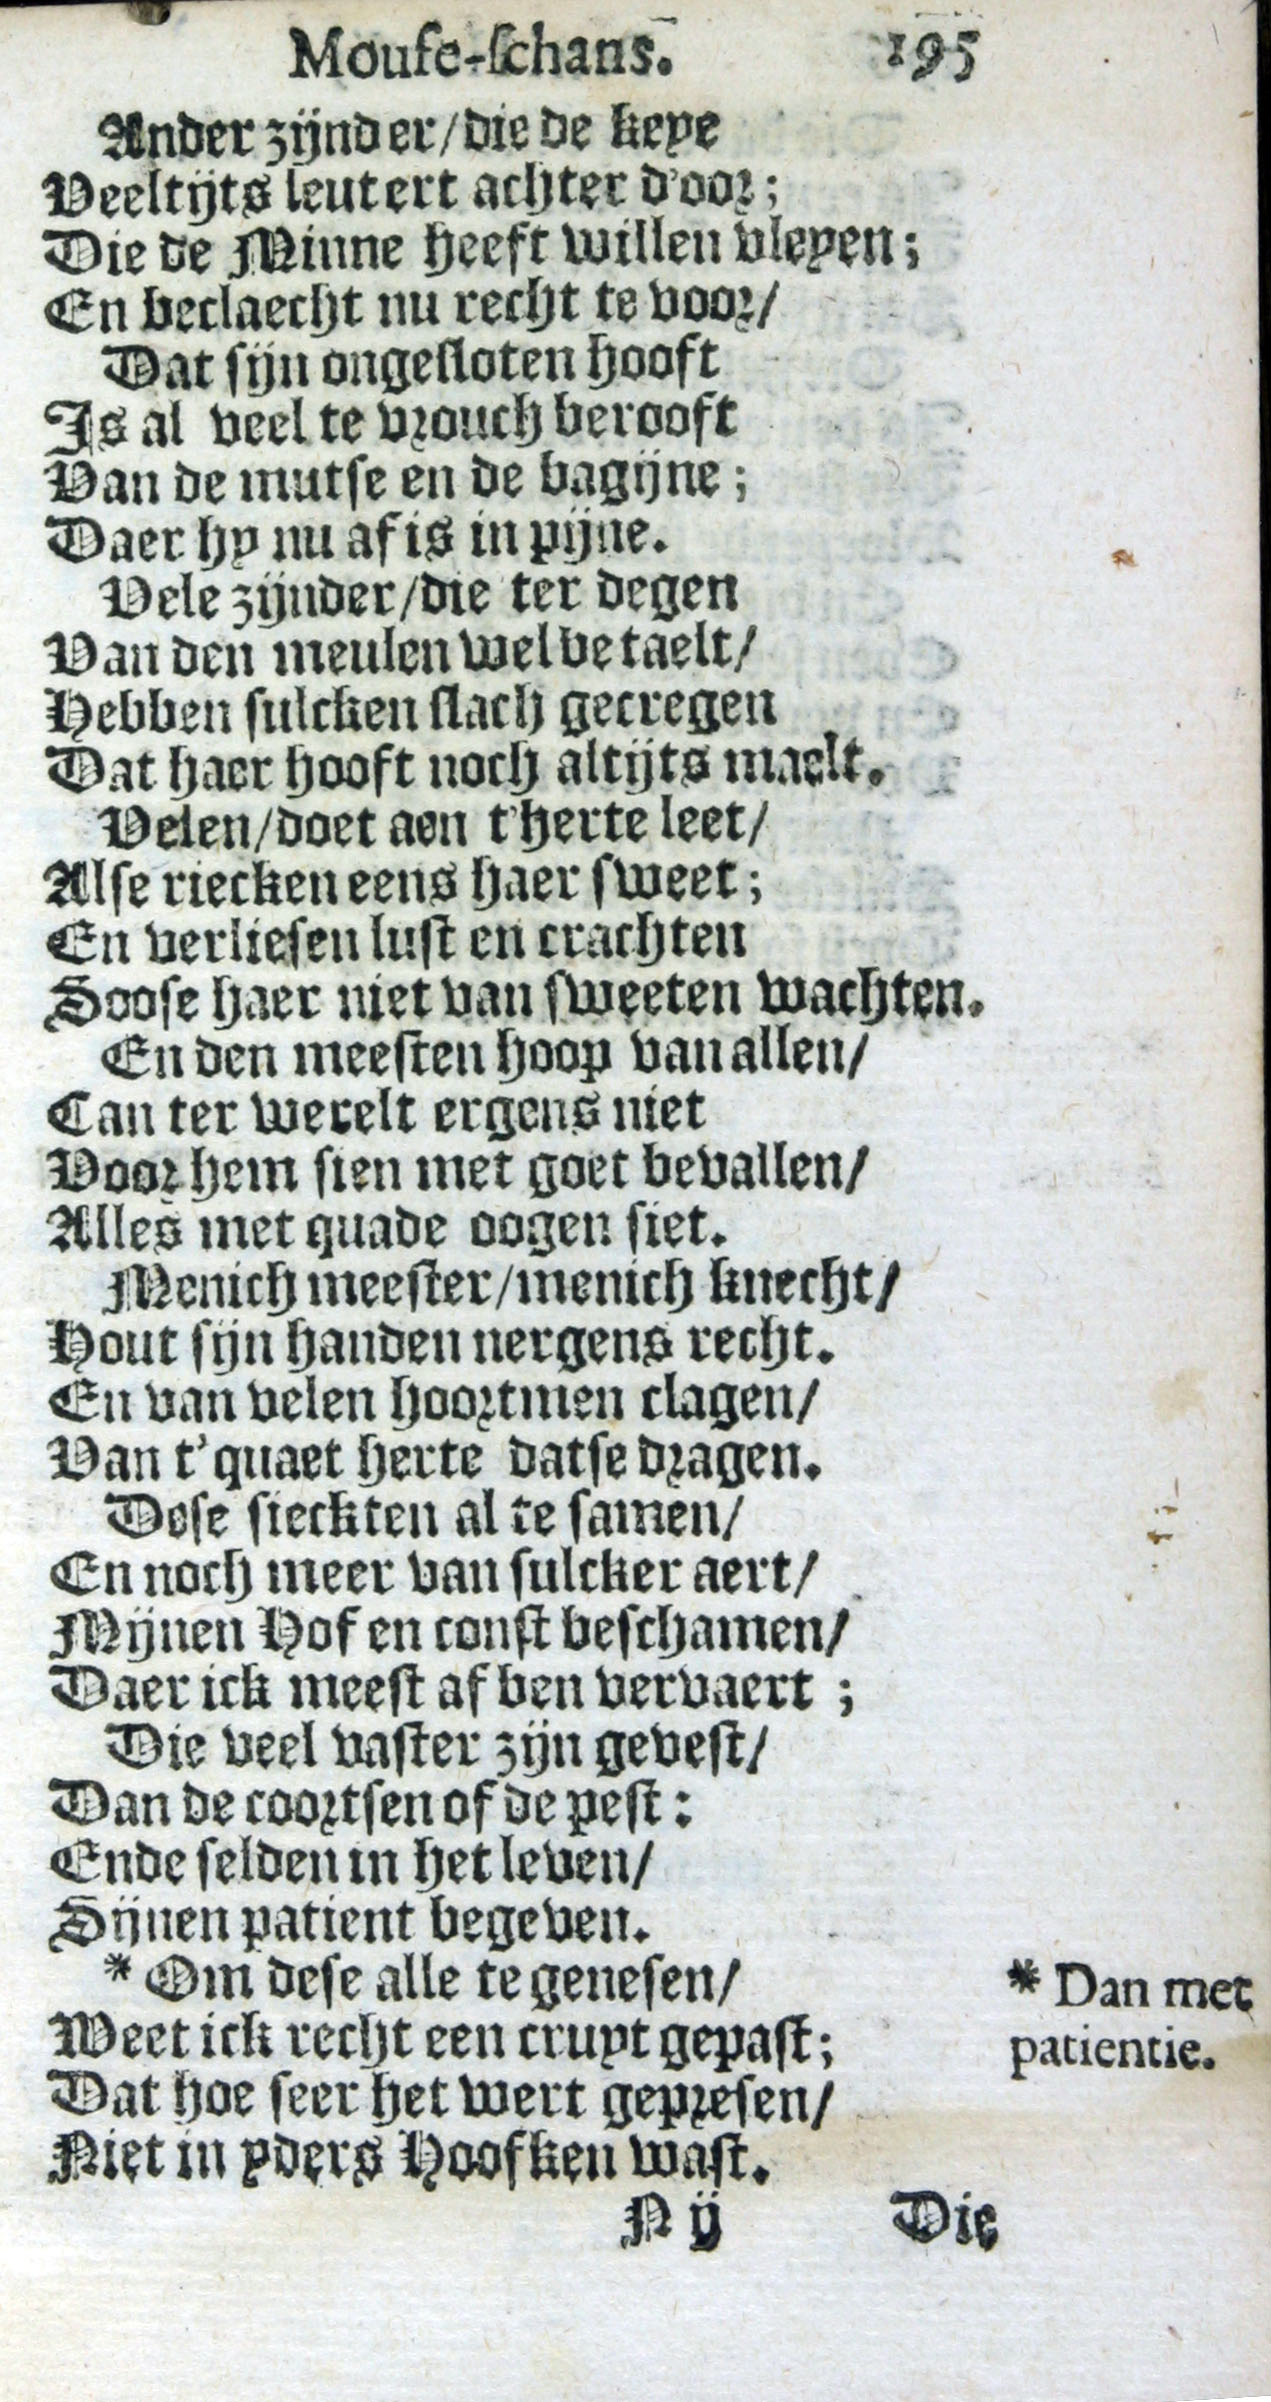 Mouse-schans. 195
Ander zijnder/die de keye
Veeltijts leutert achter d'oor;
Die de Minne heeft willen vleyen;
En beclaecht nu recht te voor/
Dat sijn ongesloten hooft
Is al veel te vrouch berooft
Van de mutse en de bagijne;
Daer hy nu af is in pijne.
Vele zijnder/die ter degen
Van den meulen wel betaelt/
Hebben sulcken slach gecregen
Dat haer hooft noch altijts maelt.
Velen/doet aen t'herte leet/
Alse riecken eens haer sweet;
En verliesen lust en crachten
Soose haer niet van sweeten wachten.
En den meesten hoop van allen/
Can ter werelt ergens niet
Voor hem sien met goet bevallen/
Alles met quade oogen siet.
Menich meester/menich knecht/
Hout sijn handen nergens recht.
En van velen hoortmen clagen/
Van t'quaet herte datse dragen.
Dese sieckten al te samen/
En noch meer van sulcker aert/
Mijnen Hof en const beschamen/
Daer ick meest af ben vervaert ;
Die veel vaster zijn gevest/
Dan de coortsen of de pest:
Ende selden in het leven/
Sijnen patient begeven.
* Om dese alle te genesen/
Weet ick recht een cruyt gepast;
Dat hoe seer het wert gepresen/
Niet in yders Hoofken wast.
* Dan met
patientie.
N ij Die